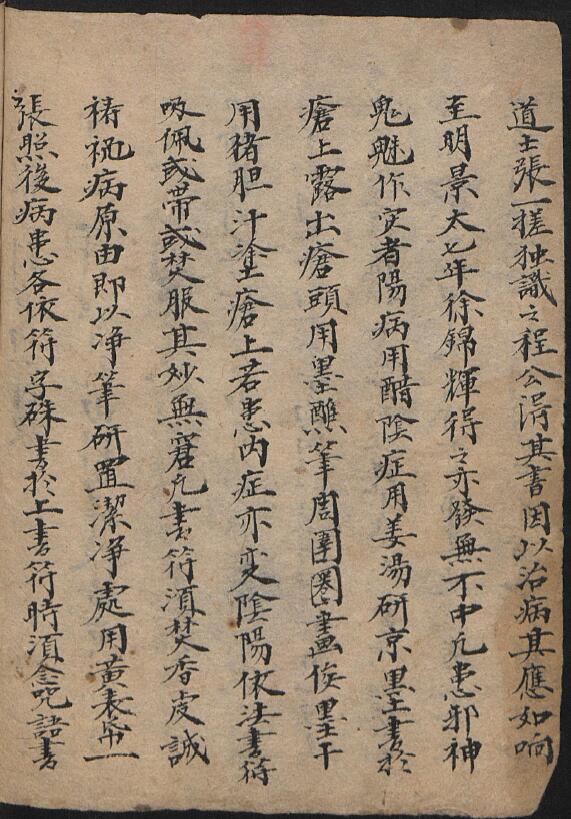 道士張一槎独識之程公涓其書因以治病其應如响
至明景太七年徐錦輝得之亦發無不中凡患邪神
鬼魅作灾者陽病用醋陰症用姜湯研京墨書於
瘡上露出瘡頭用墨蘸筆周圍圈畫俟墨干
用猪胆汁塗瘡上若患内症亦变陰陽依法書符
吸佩或帶或焚服其妙無窘凡書符湏焚香虔誠
祷祝病原由即以净筆研置潔净處用黄表帋一
張照後病患各依符字硃書於上書符時湏念咒語書